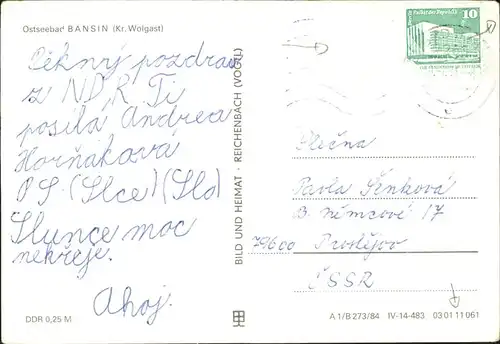 Ostseebad BANSIN (Kr. Wolgast)
Pěkný pozdrav
z NDR Ti
posílá Andrea
Horňáková
P.S. (Slce) (Sld)
Slunce moc
nehřeje.
Ahoj.
DDR 0,25 M
BILD UND HEIMAT · REICHENBACH (VOGTL)
10
Slečna
Pavla Šénková
B. němcové 17
796 00 Prostějov
ČSSR
A 1/B 273/84 IV-14-483 03 01 11 061